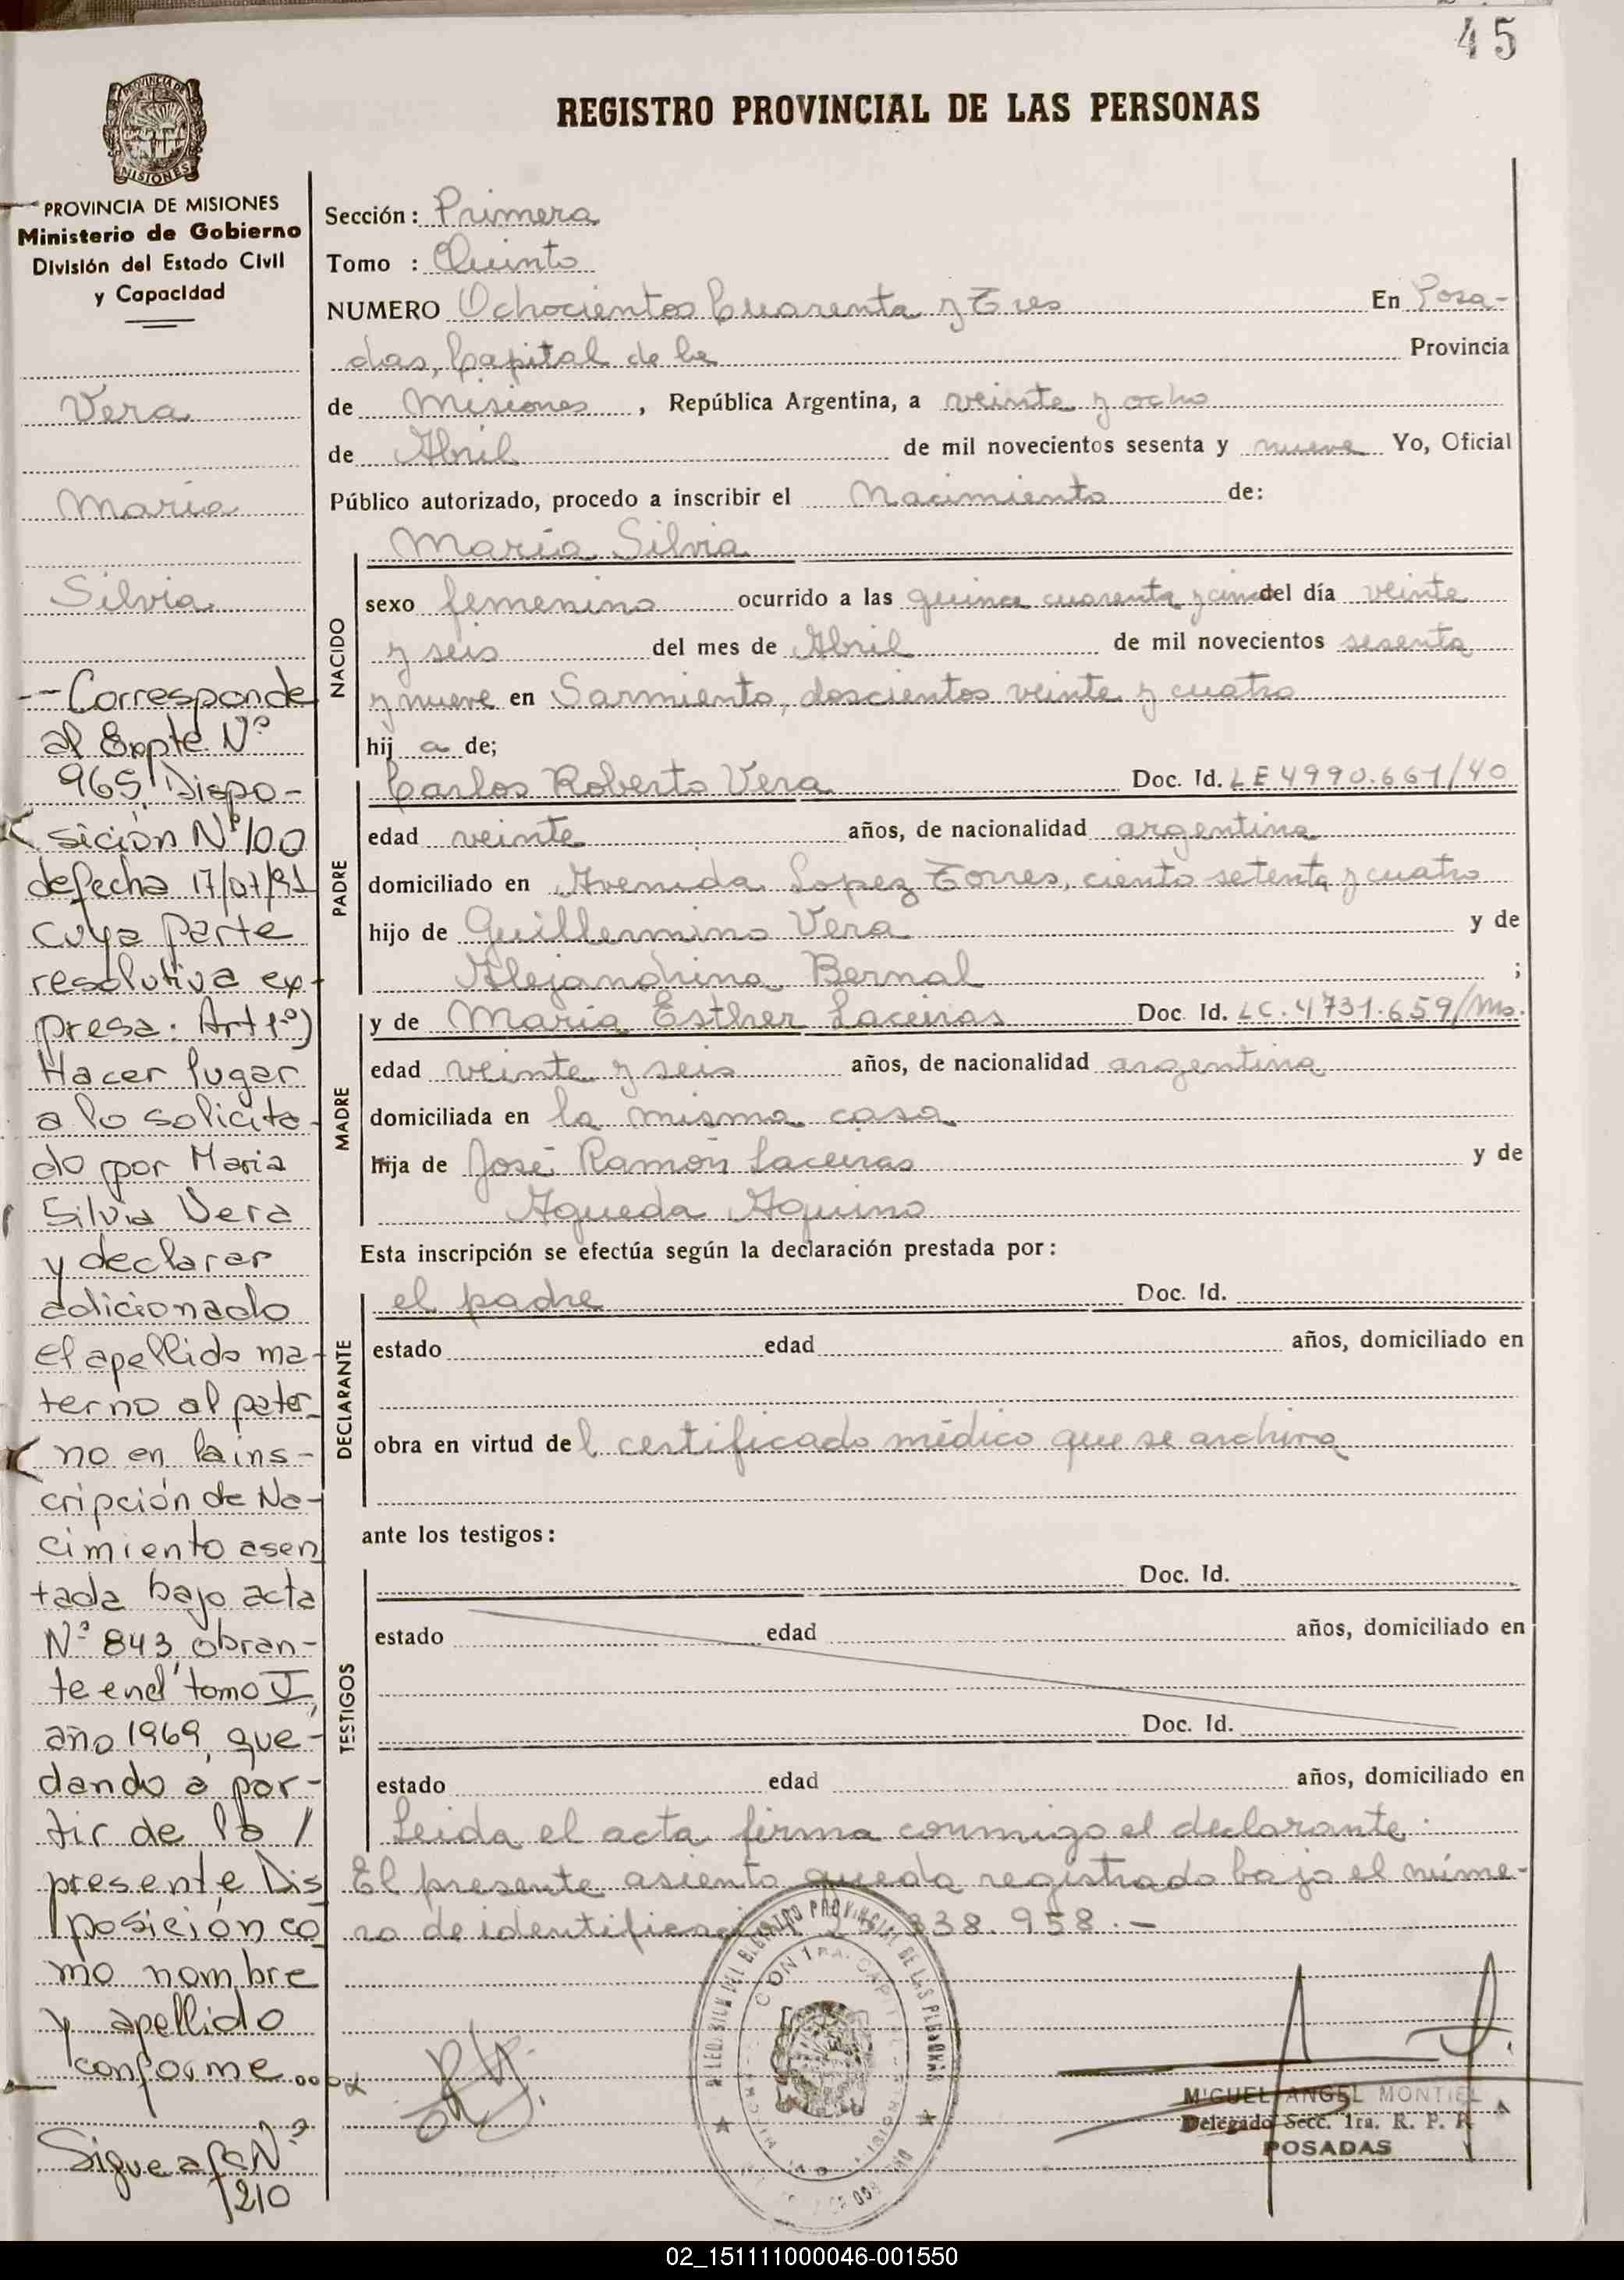 45
REGISTRO PROVINCIAL DE LAS PERSONAS
PROVINCIA DE MISIONES
Ministerio de Gobierno
División del Estado Civil
y Capacidad
Vera
María
Silvia
--Corresponde
al Expte Nº
965, Dispo-
sición Nº 100
de fecha 17/07/91
cuya parte
resolutiva ex-
presa: Art 1º)
Hacer lugar
a lo solicita-
do por Maria
Silvia Vera
y declarar
adicionado
el apellido ma-
terno al pater
no en la ins-
cripción de Na-
cimiento asen
tada bajo acta
Nº 843, obran-
te en el tomo V,
año 1969, que-
dando a par-
tir de la /
presente Dis
posición co
mo nombre
y apellido
conforme...
Sigue a fs Nº
210
Sección: Primera
Tomo : Quinto
NUMERO Ochocientos Cuarenta y Tres En Posa-
das, Capital de la Provincia
de Misiones, República Argentina, a veinte y ocho
de Abril de mil novecientos sesenta y nueve Yo, Oficial
Público autorizado, procedo a inscribir el Nacimiento de:
María Silvia
NACIDO
sexo femenino ocurrido a las quince cuarenta y cinco del día veinte
y seis del mes de Abril de mil novecientos sesenta
y nueve en Sarmiento, doscientos veinte y cuatro
hij a de;
PADRE
Carlos Roberto Vera Doc. Id. LE 4990.661/40
edad veinte años, de nacionalidad argentina
domiciliado en Avenida Lopez Torres, ciento setenta y cuatro
hijo de Guillermino Vera y de
Alejandrina Bernal ;
MADRE
y de María Esther Laceiras Doc. Id. LC. 4731.659/Mo.
edad veinte y seis años, de nacionalidad argentina
domiciliada en la misma casa
hija de José Ramón Laceiras y de
Agueda Aquino
Esta inscripción se efectúa según la declaración prestada por:
DECLARANTE
el padre Doc. Id.
estado edad años, domiciliado en
obra en virtud del certificado médico que se archiva
ante los testigos:
TESTIGOS
Doc. Id.
estado edad años, domiciliado en
Doc. Id.
estado edad años, domiciliado en
Leida el acta firma conmigo el declarante.
El presente asiento queda registrado bajo el núme-
ro de identificación 838.958.-
MIGUEL ANGEL MONTIEL
Delegado Secc. 1ra. R. P. P.
POSADAS
02_151111000046-001550